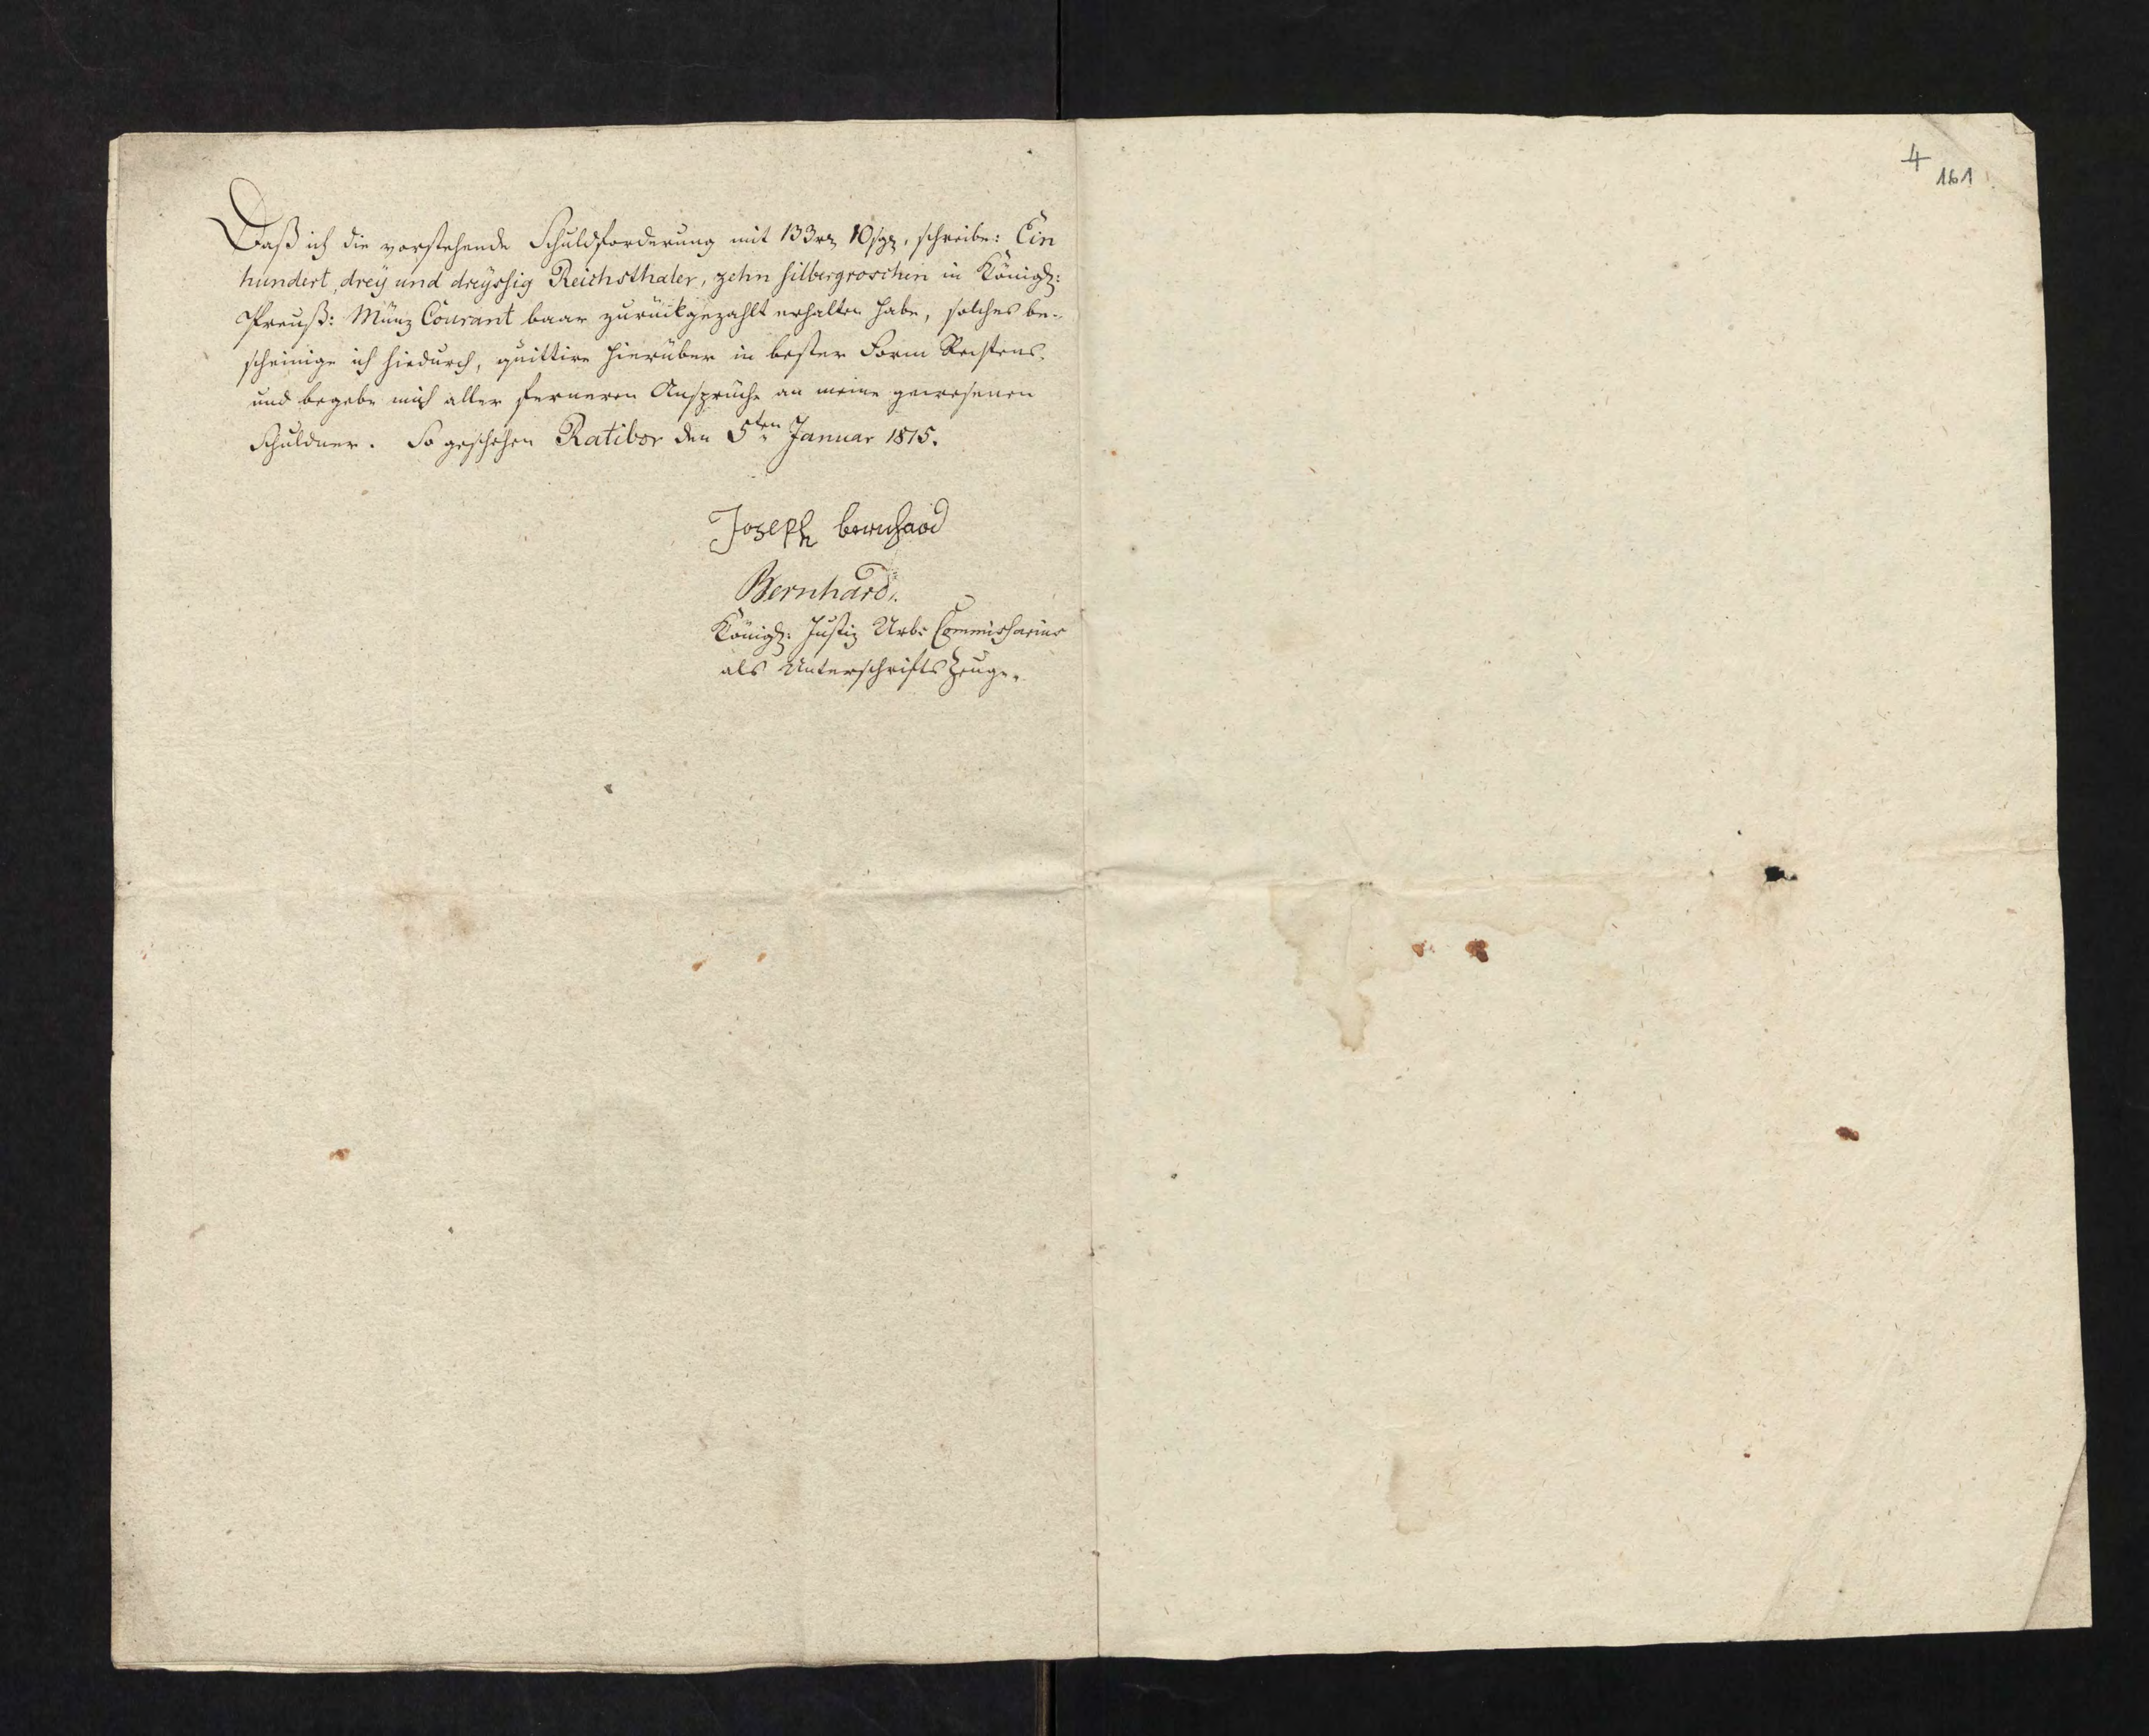 Daß ich die vorstehende Schuldforderung mit 133 rz 10 sgr, schreibe: Ein
hundert, drey und dreyssig Reichsthaler, zehn silbergroschen in Königl:
Preuß: Münz Courant baar zurückgezahlt erhalten habe, solches be-
scheinige ich hiedurch, quittire hierüber in bester Form Rechtens,
und begebe mich aller ferneren Ansprüche an meine gewesenen
Schuldner. So geschehen Ratibor den 5ten Januar 1815.
Joseph bernhard
Bernhardi.
Königl: Justiz Urb: Commissarius
als Unterschrifts Zeuge.
4
161